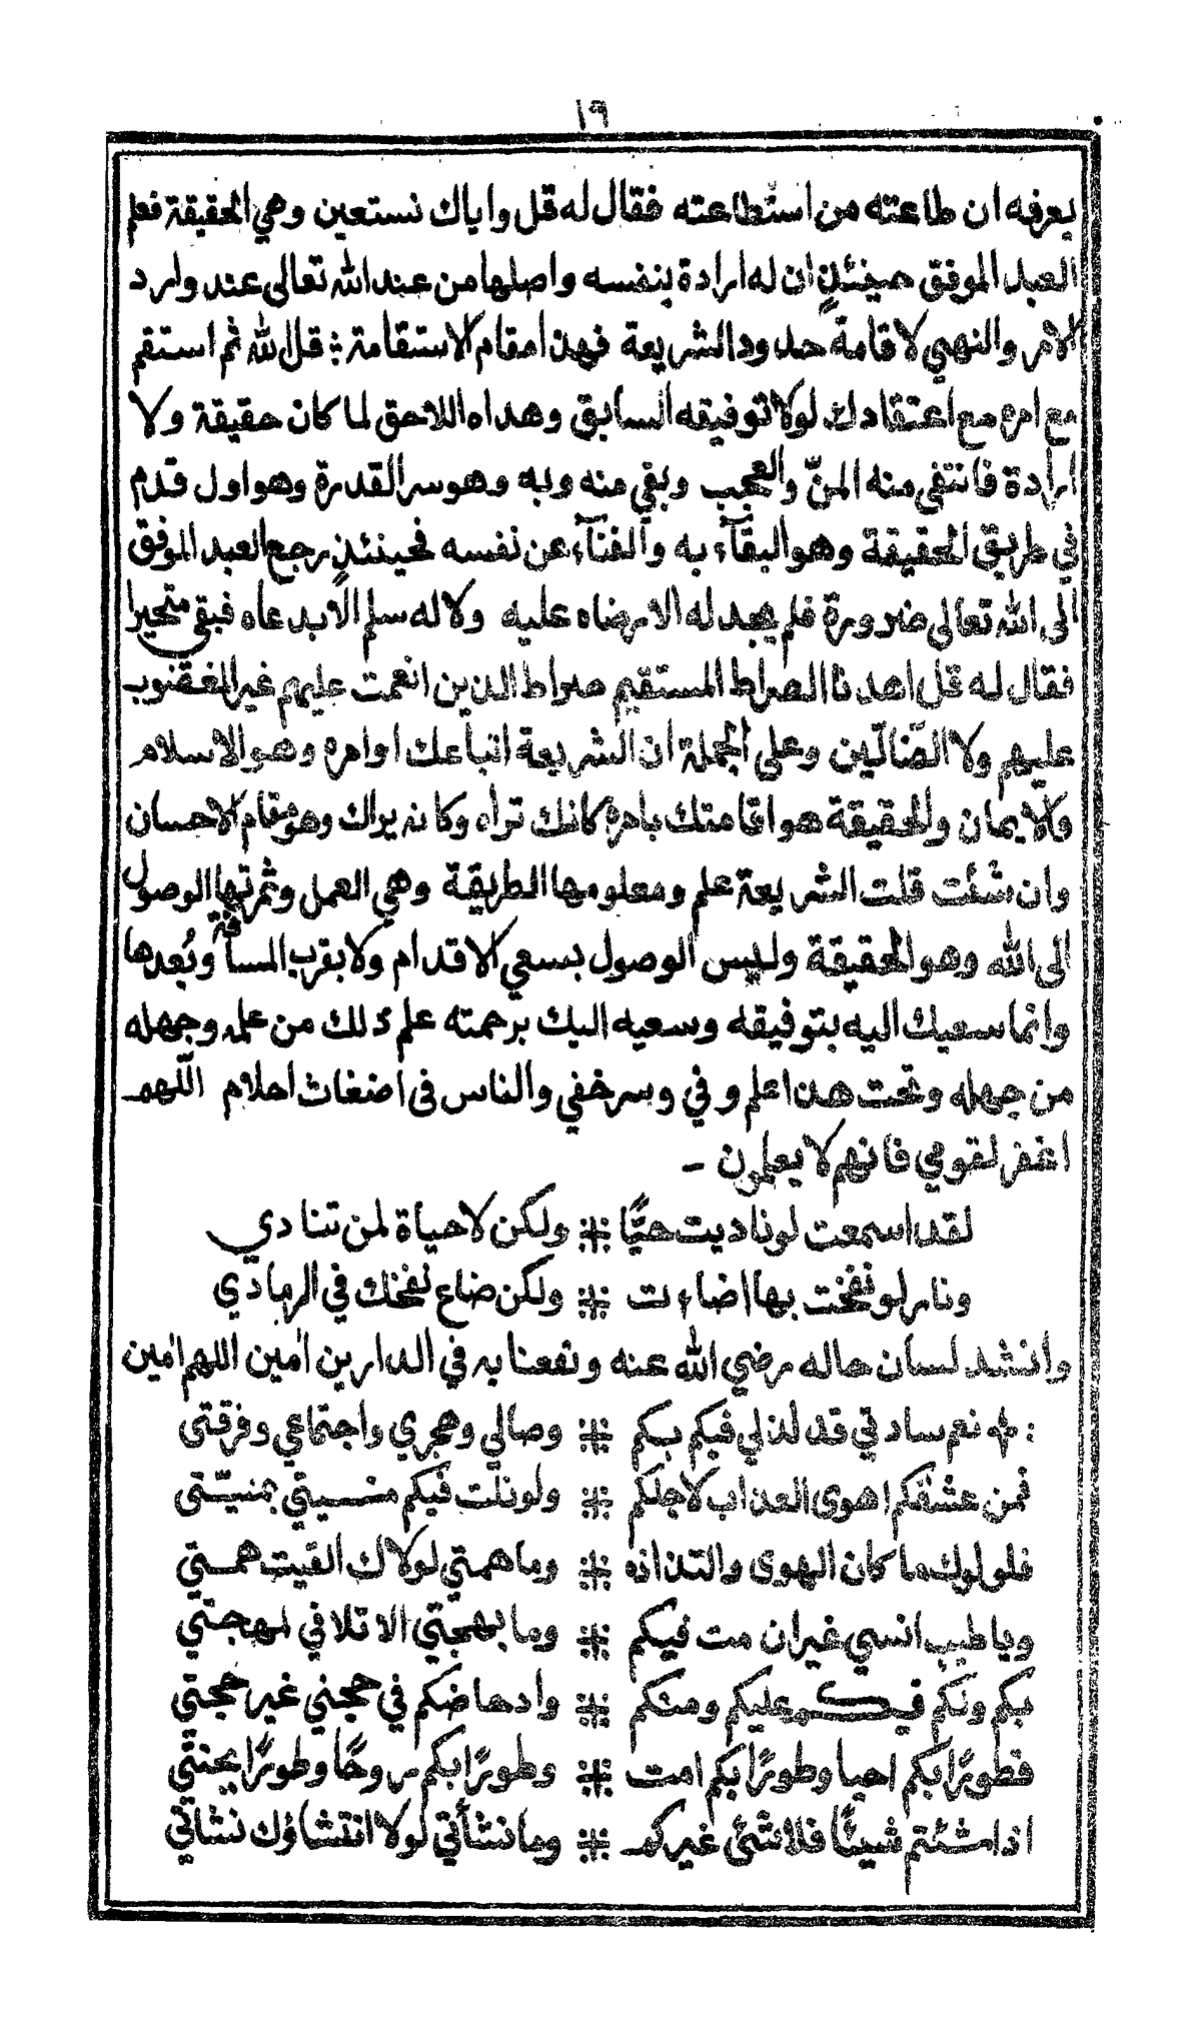 ١٩
يعرفه ان طاعته من استطاعته فقال له قل واياك نستعين وهي الحقيقة فعلم
العبد الموفق حينئذٍ ان له ارادة بنفسه واصلها من عند الله تعالى عند وارد
الامر والنهي لاقامة حدود الشريعة فهذا مقام الاستقامة : قل لله ثم استقم
مع امره مع اعتقادك لولا توفيقه السابق وهداه اللاحق لما كان حقيقة ولا
ارادة فانتفى منه المنّ والعجب وبقي منه وبه وهو سر القدرة وهو اول قدم
في طريق الحقيقة وهو البقآء به والفنآء عن نفسه فحينئذٍ رجع العبد الموفق
الى الله تعالى ضرورة فلم يجد له الا رضاه عليه ولا له سلم الا بدعاه فبقى متحيرا
فقال له قل اهدنا الصراط المستقيم صراط الذين انعمت عليهم غير المغضوب
عليهم ولا الضّالّين وعلى الجملة ان الشريعة اتباعك اوامره وهو الاسلام
والايمان والحقيقة هو اقامتك بامره كانك تراه وكانه يراك وهو مقام الاحسان
وان شئت قلت الشريعة علم ومعلومها الطريقة وهي العمل وثمرتها الوصول
الى الله وهو الحقيقة وليس الوصول بسعي الاقدام ولا بقرب المسافة وبُعدها
وانما سعيك اليه بتوفيقه وسعيه اليك برحمته علم ذلك من علمه وجهله
من جهله وتحت هذا علم وفي وسر خفي والناس فى اضغاث احلام اللهم
اغفر لقومي فانهم لا يعلمون -
لقد اسمعت لو ناديت حيًّا ⁜ ولكن لا حياة لمن تنادي
ونار لو نفخت بها اضاءت ⁜ ولكن ضاع نفخك في الرمادي
وانشد لسان حاله رضي الله عنه ونفعنا به في الدارين امين اللهم امين
نعم سادتي قد لذ لي فيكم بكم ⁜ وصالي وهجري واجتماعي وفرقتى
فمن عشقكم اهوى العذاب لاجلكم ⁜ ولو نلت فيكم منسيتي بمنيّتى
فلولوك ما كان الهوى والتذاذه ⁜ وما همتي لولاك القيت همتي
ويا طيب انسي غير ان مت فيكم ⁜ وما بهجتي الا تلافي لمهجتي
بكم ولكم فيكم عليكم ومنكم ⁜ وادهاضكم في حجني غير حجتي
فطورًا بكم احيا وطورًا بكم امت ⁜ وطورًا بكم روحًا وطورًا بجنتي
اذا شئتم شيئًا فلا شئ غيركم ⁜ وما نشأتي لولا انتشاؤك نشاتي